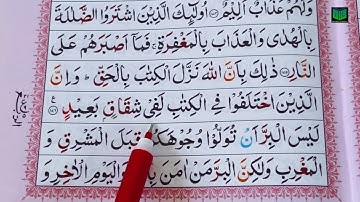 وَلَهُمْ عَذَابٌ اَلِيْمٌ اُولٰٓئِكَ الَّذِيْنَ اشْتَرَوُا الضَّلٰلَةَ
بِالْهُدٰى وَالْعَذَابَ بِالْمَغْفِرَةِ ۚ فَمَاۤ اَصْبَرَهُمْ عَلَى
النَّارِ ذٰلِكَ بِاَنَّ اللّٰهَ نَزَّلَ الْكِتٰبَ بِالْحَقِّ ؕ وَاِنَّ
الَّذِيْنَ اخْتَلَفُوْا فِي الْكِتٰبِ لَفِيْ شِقَاقٍۭ بَعِيْدٍ
لَيْسَ الْبِرَّ اَنْ تُوَلُّوْا وُجُوْهَكُمْ قِبَلَ الْمَشْرِقِ وَ
الْمَغْرِبِ وَلٰكِنَّ الْبِرَّ مَنْ اٰمَنَ وَالْيَوْمِ الْاٰخِرِ وَ